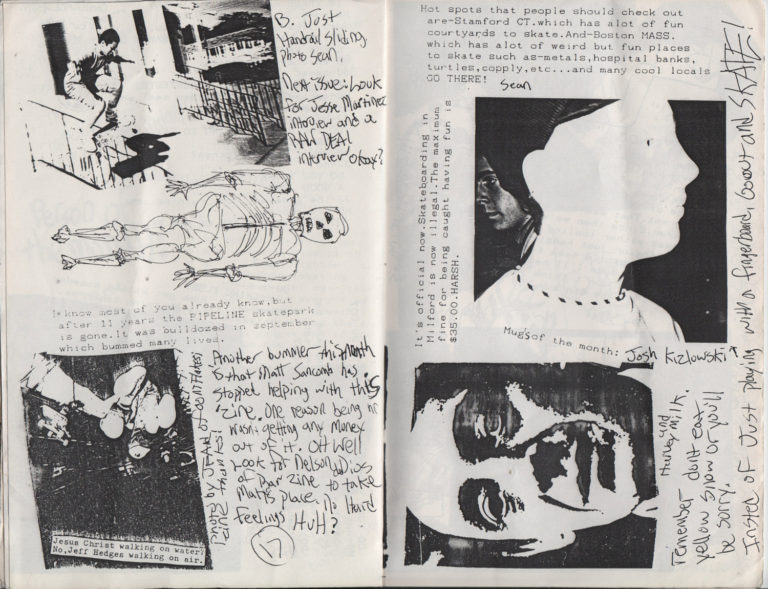 B. Just
Handrail Sliding
Photo Sean.
Next issue: Look
For Jesse Martinez
interview and a
RAW DEAL
interview okay?
I know most of you already know,but
after 11 years the PIPELINE skatepark
is gone.It was bulldozed in september
which bummed many lives.
Another bummer this month
is that Matt Sancomb has
stopped helping with this
'zine. One reason being he
wasn't getting any money
out of it. Oh well
Look for Nelson
of zine to take
Matt's place. No Hard
Feelings HUH?
17
Jesus Christ walking on water?
No,Jeff Hedges walking on air.
Hot spots that people should check out
are-Stamford CT.which has alot of fun
courtyards to skate.And-Boston MASS.
which has alot of weird but fun places
to skate such as-metals,hospital banks,
turtles,copply,etc...and many cool locals
GO THERE! Sean
It's official now.Skateboarding in
Milford is now illegal.The maximum
fine for being caught having fun is
$35.00.HARSH.
Mug's of the month: Josh Kizlowski
and
Harvey Milk.
remember- don't eat
yellow snow or you'll
be sorry.
Insted of Just playing with a fingerboard, Go out and SKATE!